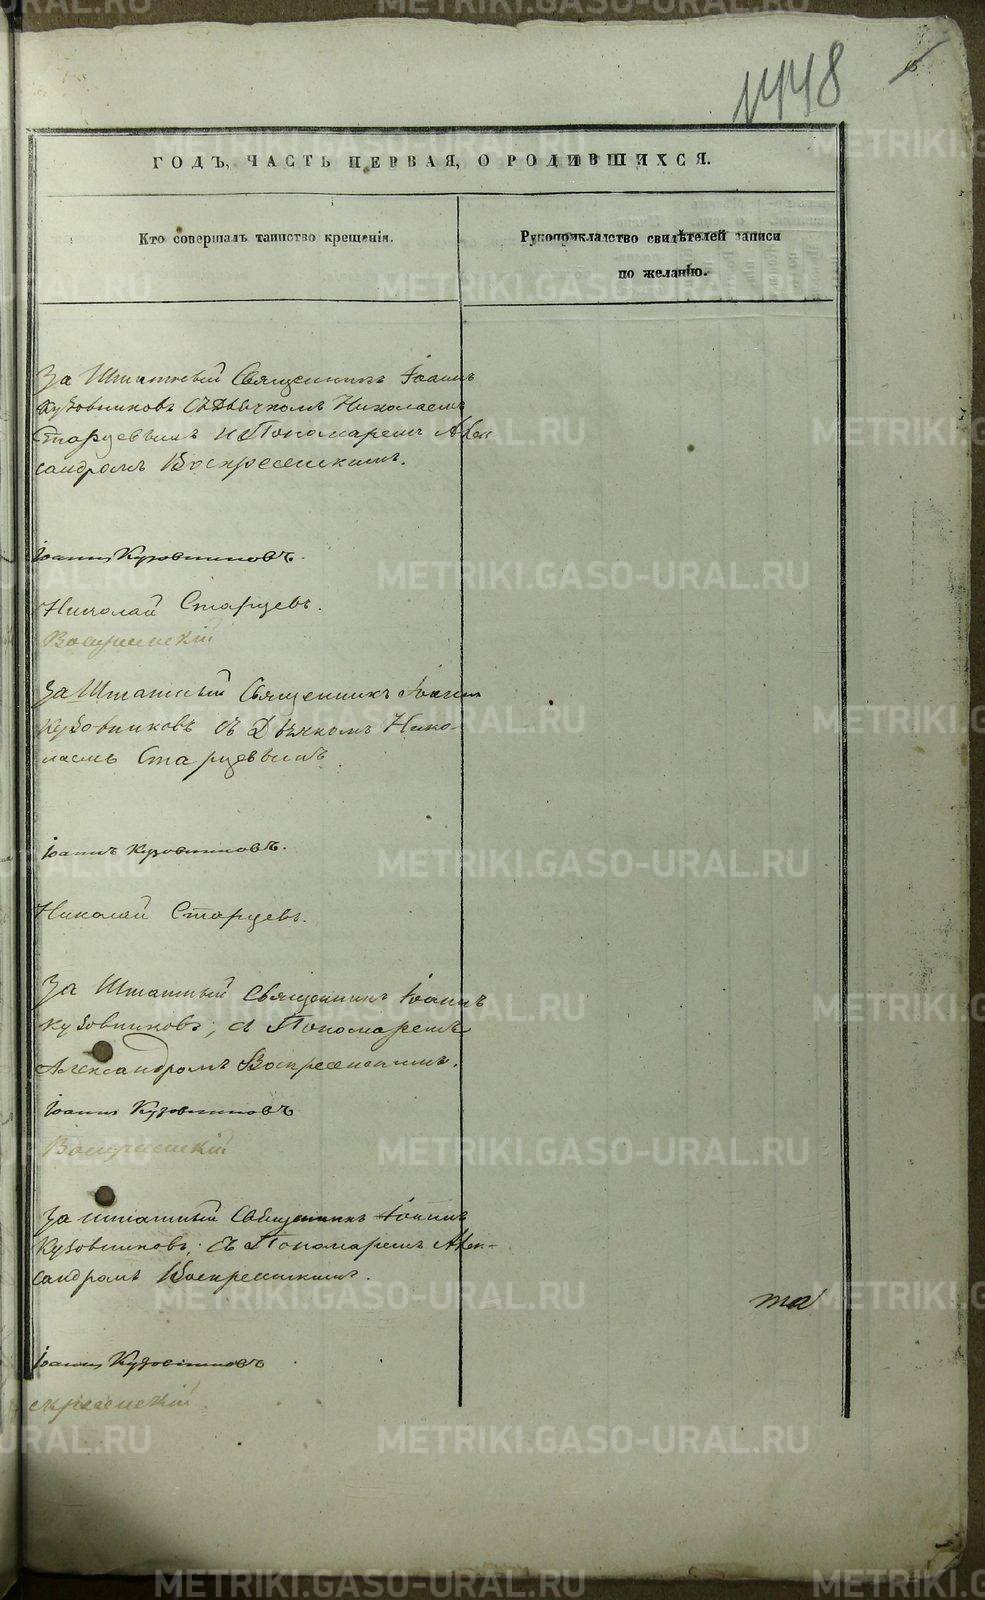 1448
ГОДЪ, ЧАСТЬ ПЕРВАЯ, О РОДИВШИХСЯ.
Кто совершалъ таинство крещенія.
Рукоприкладство свидѣтелей записи
по желанію.
За Штатный Священникъ Іоаннъ
Кузовниковъ съ Дьячкомъ Николаемъ
Старцевымъ и Пономаремъ Алек
сандромъ Воскресенскимъ.
Іоаннъ Кузовниковъ.
Николай Старцевъ.
Воскресенскій
За Штатный Священникъ Іоаннъ
Кузовниковъ съ Дьячкомъ Нико-
лаемъ Старцевымъ.
Іоаннъ Кузовниковъ.
Николай Старцевъ.
За Штатный Священникъ Іоаннъ
Кузовниковъ; съ Пономаремъ
Александромъ Воскресенскимъ.
Іоаннъ Кузовниковъ
Воскресенскій
За штатный Священникъ Іоаннъ
Кузовниковъ; съ Пономаремъ Алек-
сандромъ Воскресенскимъ.
та
Іоаннъ Кузовниковъ
скресенскій.
METRIKI.GASO-URAL.RU